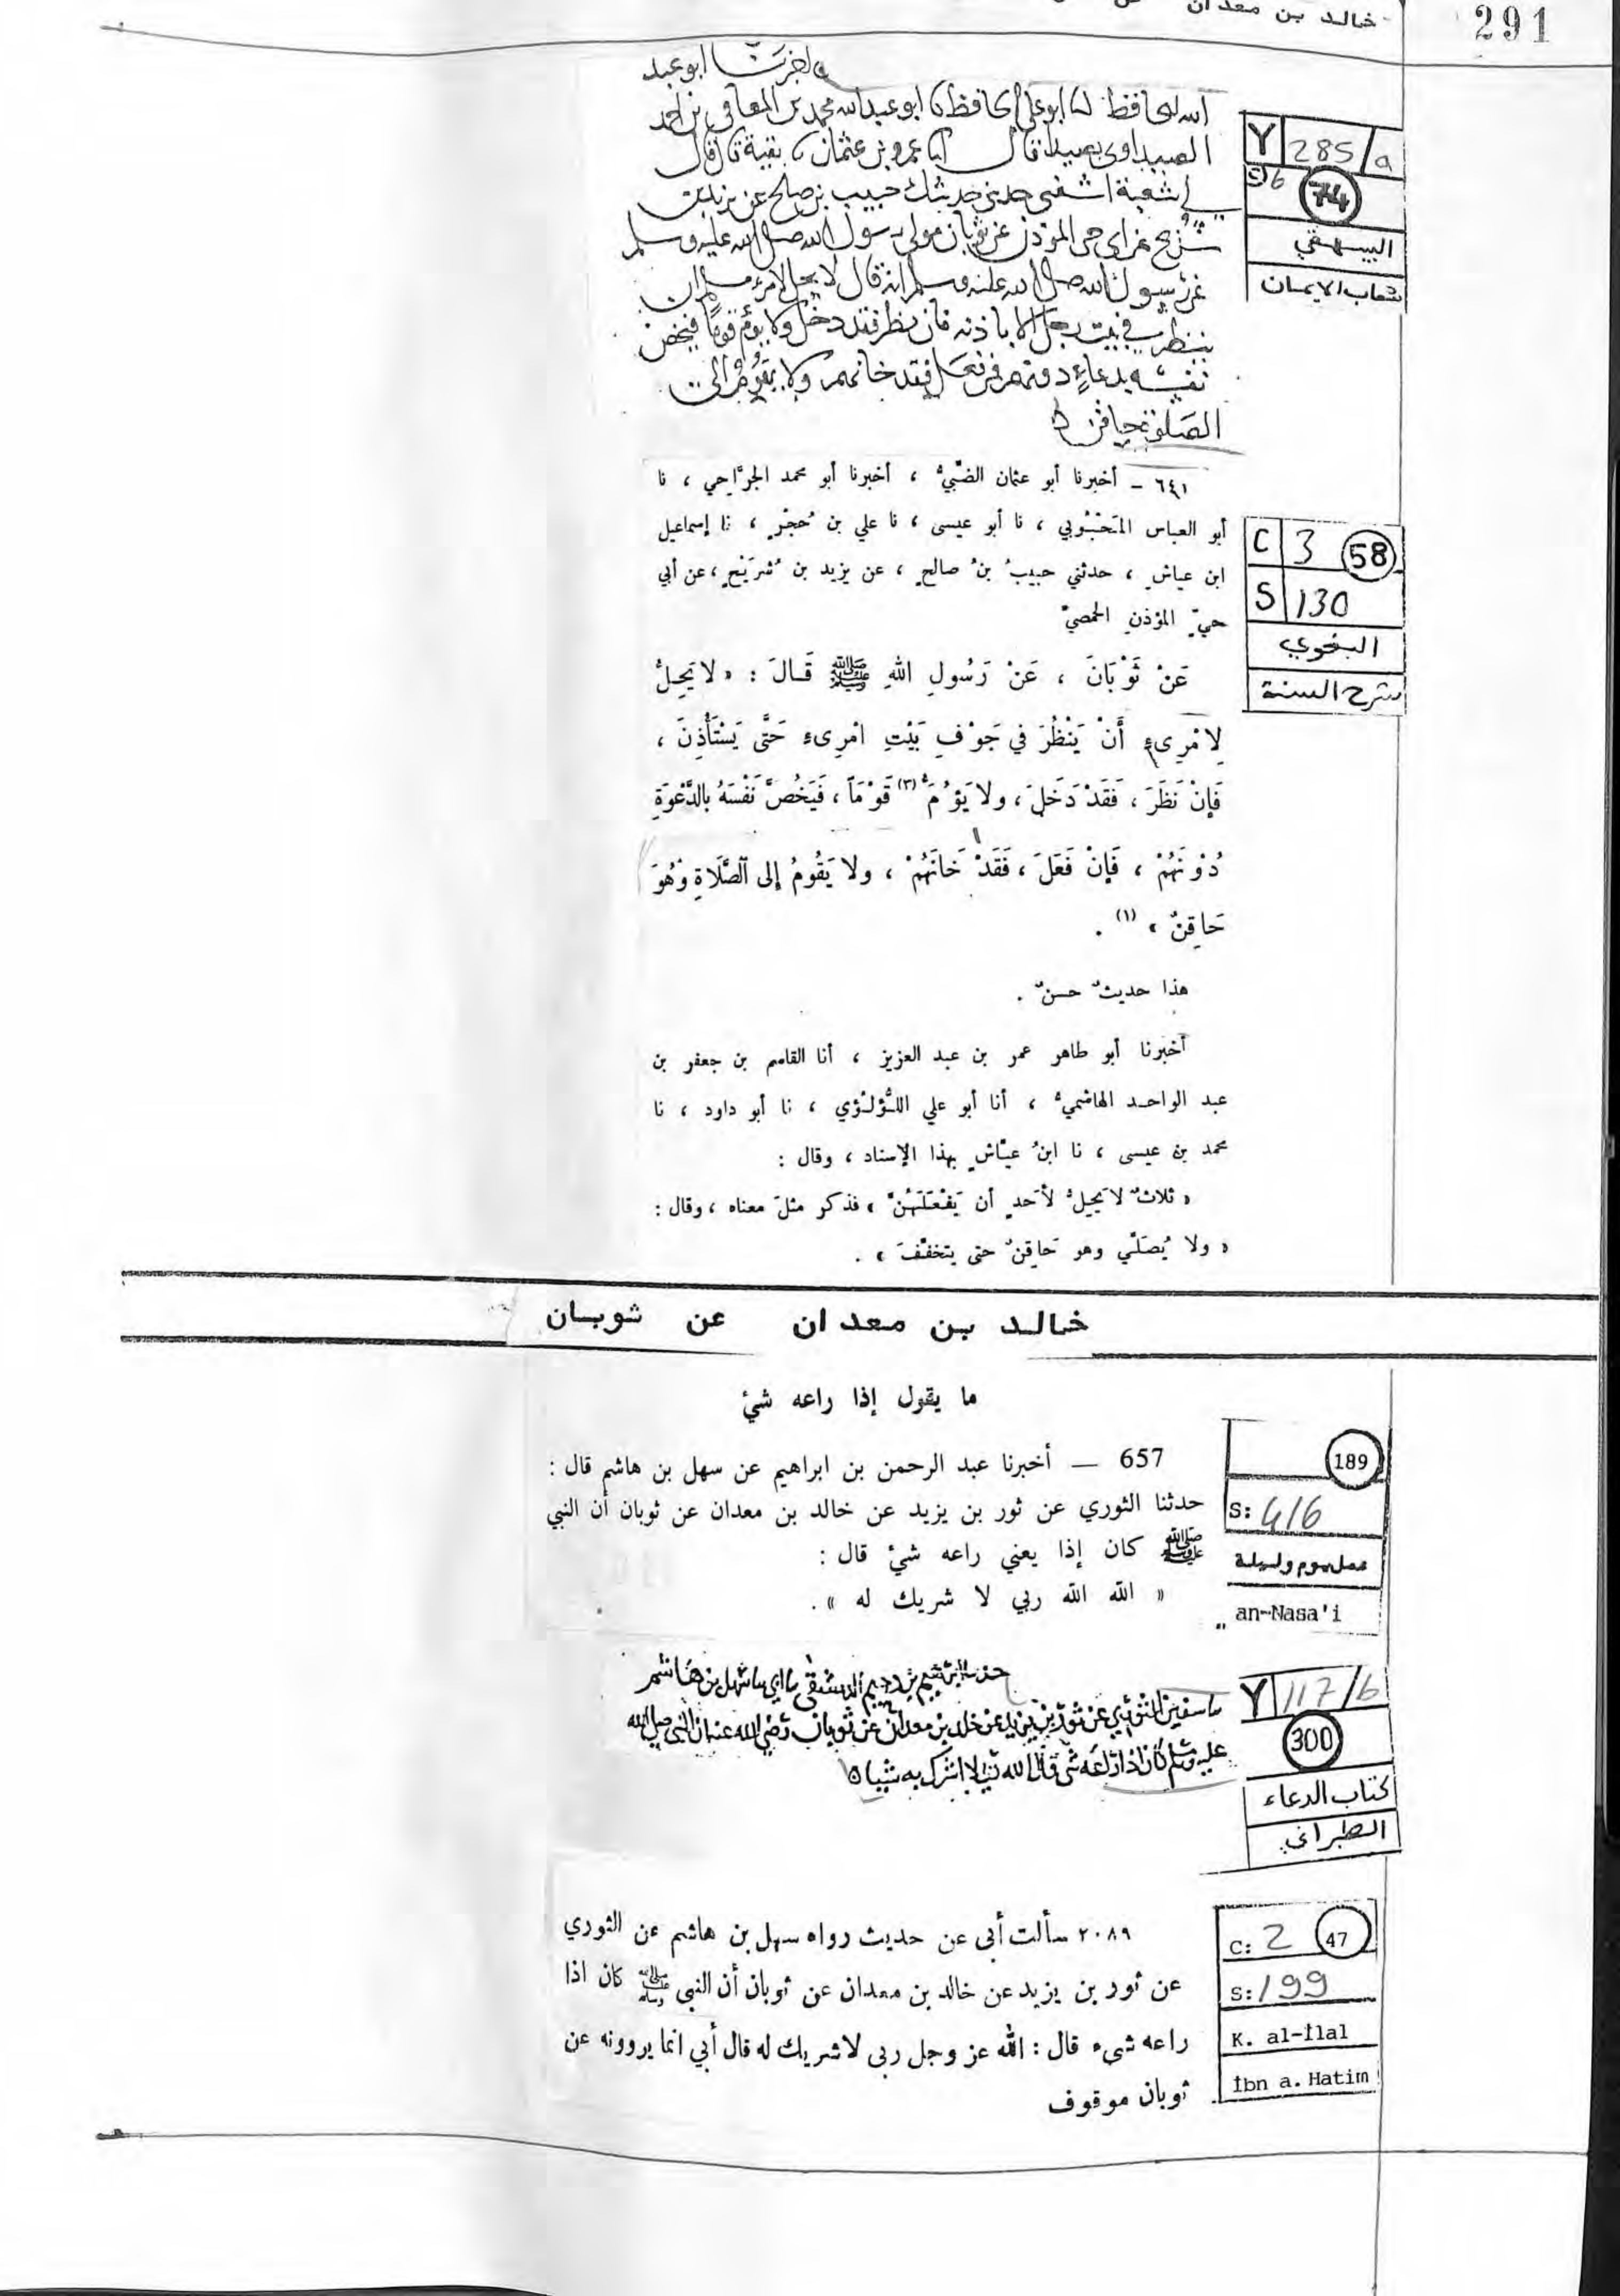 291
خالد بن معدان
واخبرنا ابو عبد
الله الحافظ انا ابو علي الحافظ نا ابو عبد الله محمد بن المعافى بن احمد
الصيداوي بصيدا قال نا عمرو بن عثمان نا بقية قال قال
لي شعبة اشفني حدثني حديثك حبيب بن صالح عن يزيد بن
شريح عن ابي حي المؤذن عن ثوبان مولى رسول الله صلى الله عليه وسلم
عن رسول الله صلى الله عليه وسلم انه قال لا يحل لامرء مسلم ان
ينظر في بيت رجل الا باذنه فان نظر فقد دخل ولا يؤم قوما فيخص
نفسه بدعاء دونهم فان فعل فقد خانهم ولا يقوم الى
الصلوة حاقن
Y 285/a
c)6 74
البيهقي
شعاب الايمان
٦٤١ – أخبرنا أبو عثمان الضّبّيُّ ، أخبرنا أبو محمد الجرَّاحي ، نا
أبو العباس المَحْبُوبي ، نا أبو عيسى ، نا علي بن حُجْرٍ ، نا إسماعيل
ابن عياشٍ ، حدثني حبيبُ بنُ صالحٍ ، عن يزيد بن شُرَيْحٍ ، عن أبي
حيٍّ المؤذنِ الحمصيِّ
عَنْ ثَوْبَانَ ، عَنْ رَسُولِ اللهِ ﷺ قَالَ : « لا يَحِلُّ
لِامْرِىءٍ أَنْ يَنْظُرَ في جَوْفِ بَيْتِ امْرِىءٍ حَتَّى يَسْتَأْذِنَ ،
فَإِنْ نَظَرَ ، فَقَدْ دَخَلَ ، ولا يَؤُمَّ (٣) قَوْمَاً ، فَيَخُصَّ نَفْسَهُ بِالدَّعْوَةِ
دُوْنَهُمْ ، فَإِنْ فَعَلَ ، فَقَدْ خَانَهُمْ ، ولا يَقُومُ إلى الصَّلَاةِ وَهُوَ
حَاقِنٌ » (١) .
هذا حديثٌ حسنٌ .
أخبرنا أبو طاهر عمر بن عبد العزيز ، أنا القاسم بن جعفر بن
عبد الواحد الهاشميُّ ، أنا أبو علي اللُّؤلُؤي ، نا أبو داود ، نا
محمد بن عيسى ، نا ابنُ عيّاشٍ بهذا الإسناد ، وقال :
« ثلاثٌ لا يَحِلُّ لأَحدٍ أن يَفْعَلَهُنَّ » فذكر مثلَ معناه ، وقال :
« ولا يُصَلّي وهو حَاقِنٌ حتى يتخفَّفَ » .
C 3 58
S 130
البغوي
شرح السنة
خالد بن معدان عن ثوبان
ما يقول إذا راعه شئ
657 — أخبرنا عبد الرحمن بن ابراهيم عن سهل بن هاشم قال :
حدثنا الثوري عن ثور بن يزيد عن خالد بن معدان عن ثوبان أن النبي
ﷺ كان إذا يعني راعه شئ قال :
« الله الله ربي لا شريك له » .
189
S: 416
عمل يوم وليلة
an-Nasa'i
حدثنا ابراهيم بن دحيم الدمشقي نا ابي نا سهل بن هاشم
نا سفين الثوري عن ثور بن يزيد عن خالد بن معدان عن ثوبان رضي الله عنه ان النبي صلى الله
عليه وسلم كان اذا راعه شي قال الله ربي لا اشرك به شيئا
Y 117/b
300
كتاب الدعاء
الطبراني
٢٠٨٩ سألت أبى عن حديث رواه سهل بن هاشم عن الثوري
عن ثور بن يزيد عن خالد بن معدان عن ثوبان أن النبى ﷺ كان اذا
راعه شىء قال : الله عز وجل ربى لا شريك له قال أبي انما يروونه عن
ثوبان موقوف
C: 2 47
S: 199
K. al-İlal
İbn a. Hatim